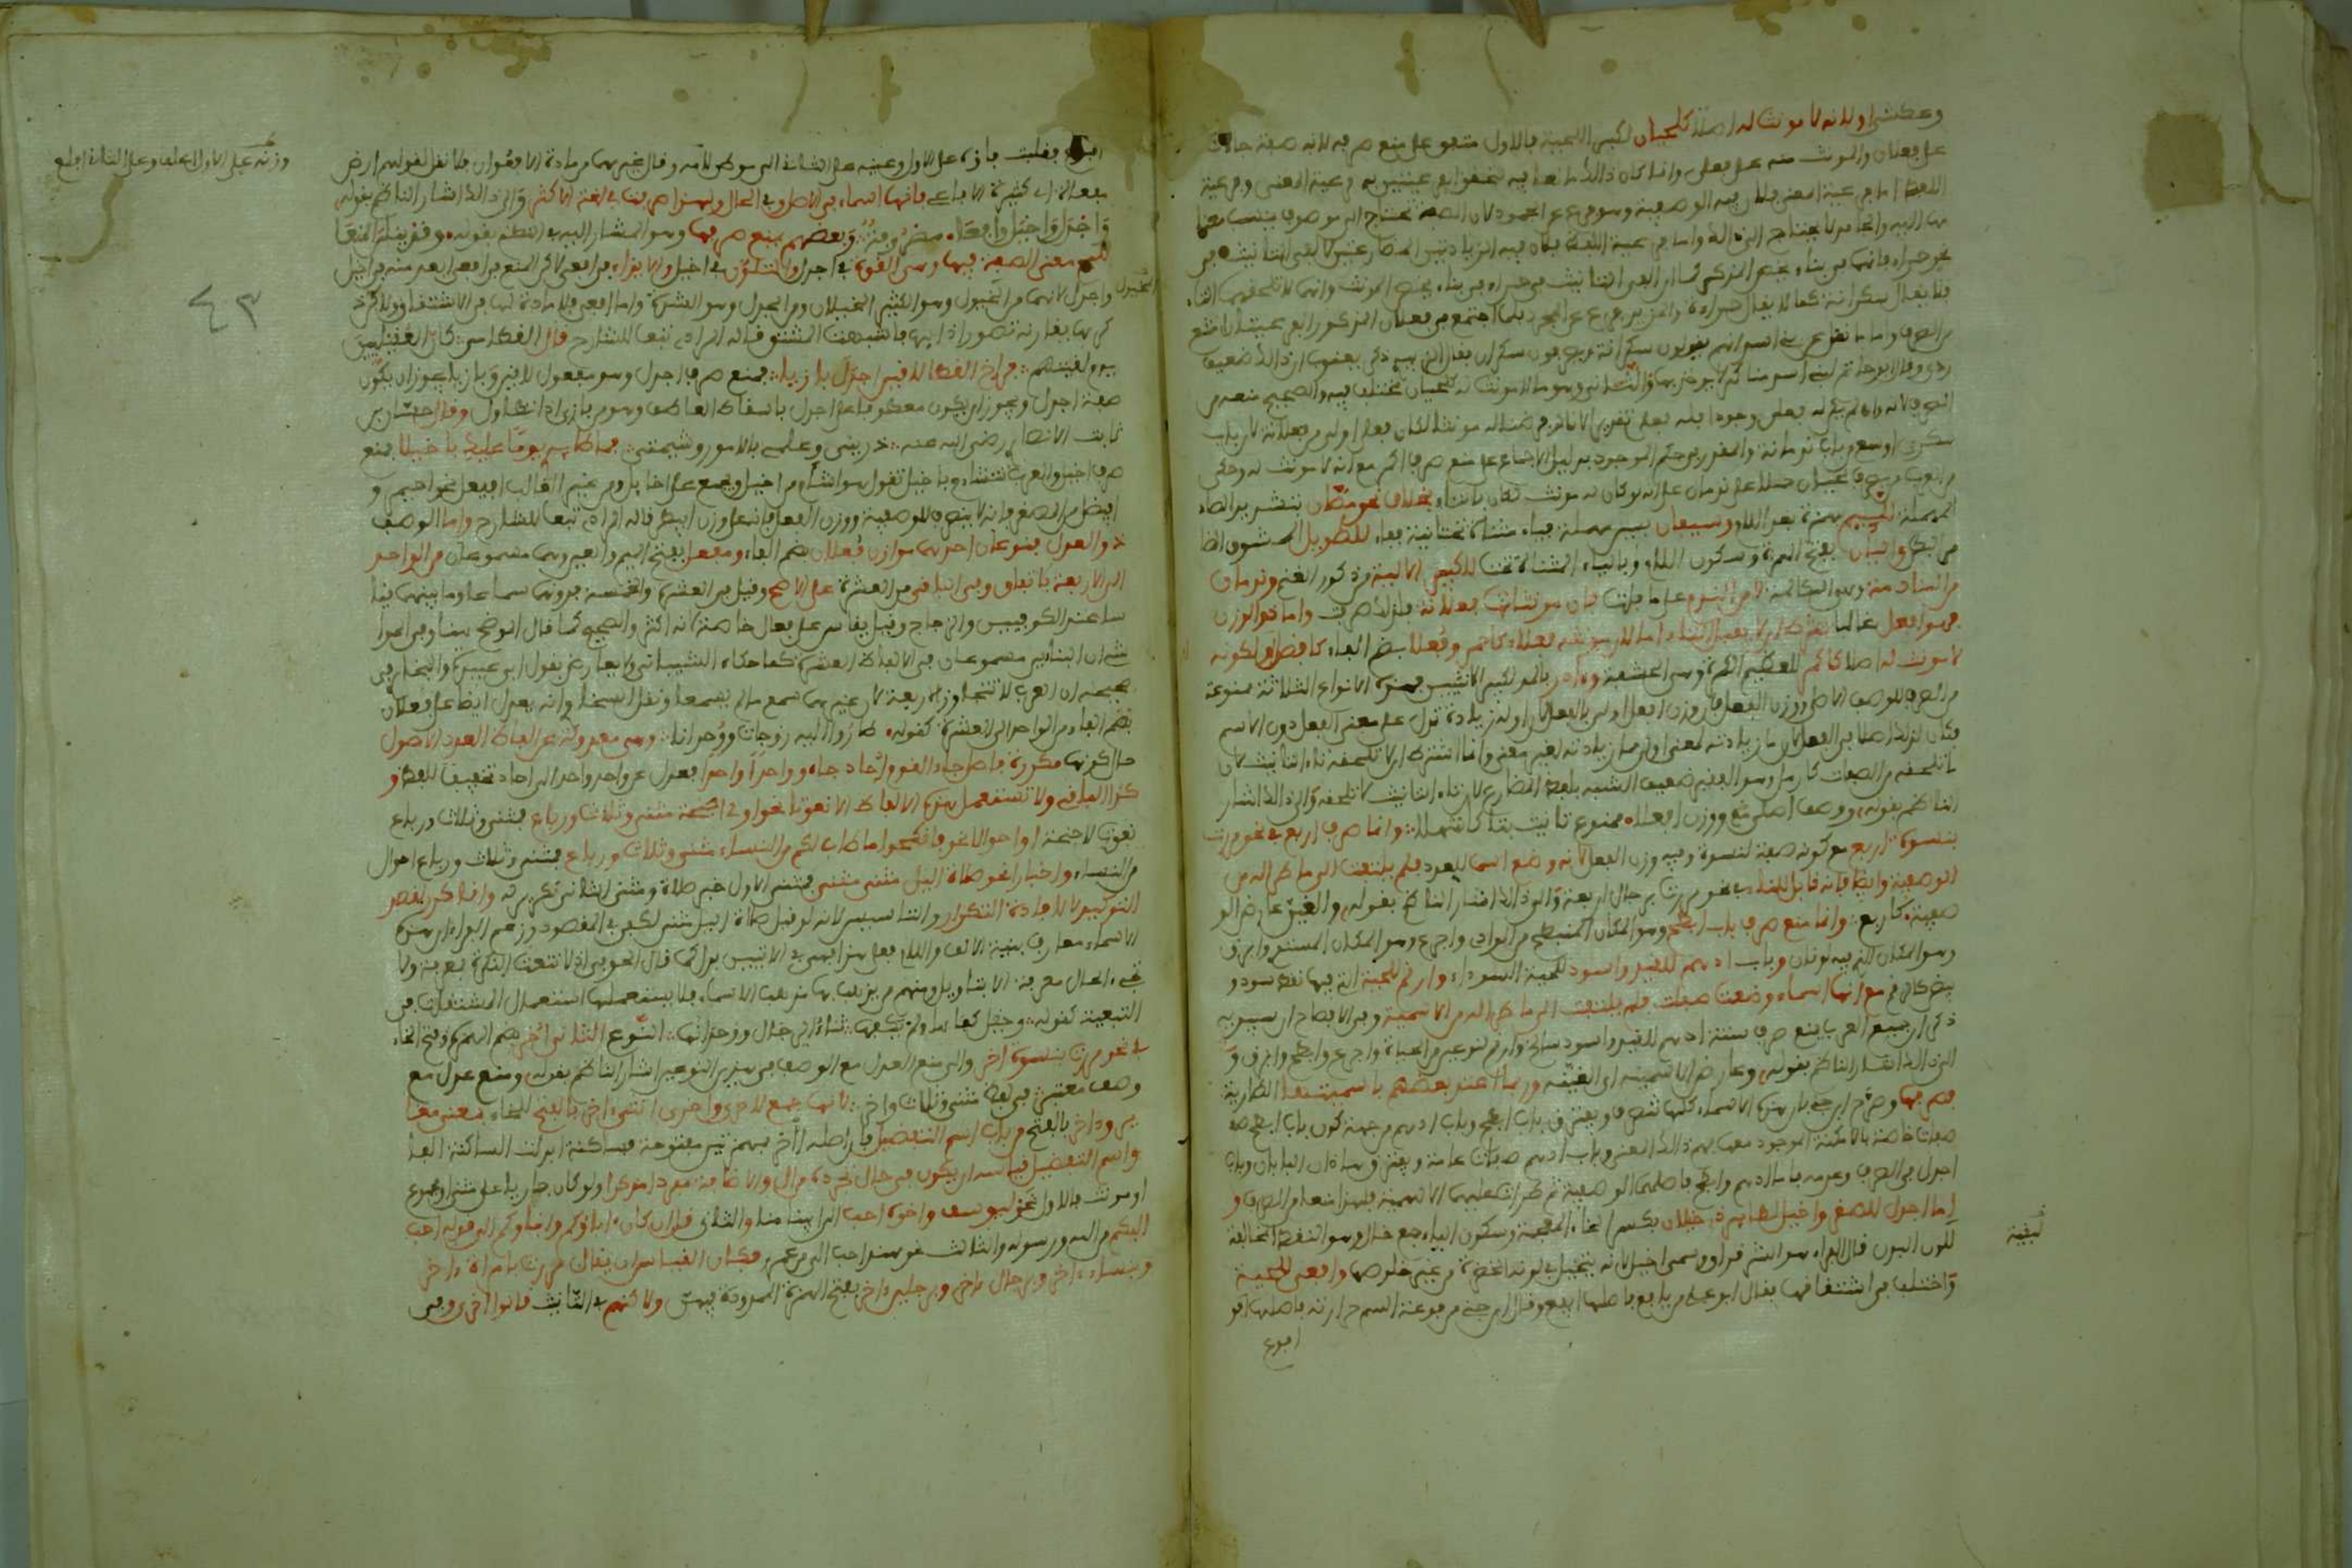 وعطشى او لانه لا مونث له اصلا كلحيان لكبير اللحية فالاول متفق على منع صرفه لانه صفة
على فعلان والمونث منه على فعلى وانما كان ذلك مانعا فيه لتحقق الفرعيتين به فرعية المعنى وفرعية
اللفظ اما فرعية المعنى فلان فيه الوصفية وهو فرع عن الجمود لان الصفة تحتاج الى موصوف ينسب معناها
اليه والجامد لا يحتاج الى ذلك واما فرعية اللفظ فلان فيه الزيادتين المضارعتين لالفي التانيث في
نحو حمراء فانهما في بناء يخص المذكر كما ان الفي التانيث في حمراء في بناء يخص المونث وانهما لا تلحقهما التاء
فلا يقال سكرانة كما لا يقال حمراءة والمزيد فرع عن المجرد فلما اجتمع في فعلان المذكور الفرعيتان امتنع
من الصرف واما ما نقل عن بني اسد انهم يقولون سكرانة ويصرفون سكران فقال الزبيدي ذكر يعقوب ان ذلك ضعيف
ردي وقال ابو حاتم لبني اسد مناكير لا يوخذ بها والثاني وهو ما لا مونث له كلحيان مختلف فيه والصحيح منعه من
الصرف لانه وان لم يكن له فعلى وجودا فله فعلى تقديرا لانا لو فرضنا له مونثا لكان فعلى اولى من فعلانة لان باب
سكرى اوسع من باب ندمانة والمقدر في حكم الموجود بدليل الاجماع على منع صرف اكمر مع انه لا مونث له وحكى
من العرب من يصرف لحيان حملا على ندمان على انه لو كان له مونث لكان بالتاء بخلاف نحو مصان بتشديد الصاد
المهملة للئيم بهمزة بعد اللام وسيفان بسين مهملة فياء مثناة تحتانية ففاء للطويل الممشوق الضامر
من البطن واليان بفتح الهمزة وسكون اللام وبالياء المثناة تحت للكبير الالية من ذكور الغنم وندمان
من المنادمة وهي المكالمة لا من الندم على ما فات فان مونثاتها فعلانة فلذلك صرفت واما ذو الوزن
فهو افعل غالبا بشرط ان لا يقبل التاء اما لان مونثه فعلاء كاحمر وفعلى بضم الفاء كافضل او لكونه
لا مونث له اصلا كاكمر للعظيم الكمرة وهي الحشفة وءادر بالمد لكبير الانثيين فهذه الانواع الثلاثة ممنوعة
من الصرف للوصف الاصلي ووزن الفعل فان وزن افعل اولى بالفعل لان اوله زيادة تدل على معنى الفعل دون الاسم
فكان لذلك اصلا في الفعل لان ما زيادته لمعنى اولى مما زيادته لغير معنى وانما اشترط ان لا تلحقه تاء التانيث لان
ما تلحقه من الصفات كارمل وهو الفقير ضعيف الشبه بلفظ المضارع لان تاء التانيث لا تلحقه والى ذلك اشار
الناظم بقوله ووصف اصلي ووزن افعلا ممنوع تانيث بتا كاشهلا وانما صرف اربع في نحو مررت
بنسوة اربع مع كونه صفة لنسوة وفيه وزن الفعل لانه وضع اسما للعدد فلم يلتفت الى ما طرا له من
الوصفية وايضا فانه قابل للتاء في نحو مررت برجال اربعة والى ذلك اشار الناظم بقوله والغين عارض الو
صفية كاربع وانما منع صرف باب ابطح وهو المكان المنبطح من الوادي واجرع وهو المكان المستوي وابرق
وهو المكان الذي فيه لونان وباب ادهم للقيد واسود للحية السوداء وارقم للحية التي فيها نقط سود و
بيض كالرقم مع انها اسماء وضعت صفات فلم يلتفت الى ما طرا لها من الاسمية وفي الايضاح ان سيبويه
ذكر ان جميع العرب تمنع صرف ستة ادهم للقيد واسود سالخ وارقم لنوعين من الحيات واجرع وابطح وابرق و
الى ذلك اشار الناظم بقوله وعارض الاسمية الغيه وربما اعتد بعضهم باسميتها الطارية
فصرفها وصرح ابن جني بان هذه الاسماء كلها تنصرف ويفترق باب ابطح وباب ادهم من جهة كون باب ابطح صفات
صفات خاصة بالامكنة الموجود معها فيها ذلك المعنى وباب ادهم صفات عامة ويفترق هذان البابان وباب
اجدل في الصرف وعدمه فاما ادهم وابطح فاصلهما الوصفية ثم طرات عليهما الاسمية فلهذا منعا من الصرف و
اما اجدل للصقر واخيل لطائر ذي خيلان بكسر الخاء المعجمة وسكون الياء جمع خال وهو النقط المخالفة
للون البدن قال الفراء هو الشقراق وسمي اخيلا لانه يتخيل في لونه الخضرة من غير خلوصها وافعى للحية
واختلف في اشتقاقها فقال ابو علي من يافع فاصلها ايفع وقال ابن جني من فوعة السم حرارته فاصلها افو
افوع
لبقية
فقلبت فاؤه على الاول وعينه على الثاني الى موطن لامه وقال غيرهما من مادة الافعوان فلا نقل لقولهم ارض
مفعاة اي كثيرة الافاعي فانها اسماء في الاصل وفي الحال ولهذا صرفت في لغة الاكثر والى ذلك اشار الناظم بقوله
واجدل واخيل وافعى مصروفة وبعضهم يمنع صرفها وهو المشار اليه في النظم بقوله وقد ينلن المنعا
للمح معنى الصفة فيها وهي القوة في اجدل والتلون في اخيل والايذاء في افعى لكن المنع في افعى ابعد منه في اخيل
واجدل لانهما من الخيول وهو الكثير الخيلان ومن الجدل وهو الشدة واما افعى فلا مادة لها في الاشتقاق ولكن ذ
كرها يقارنه تصور اذايها فاشبهت المشتق قاله المرادي تبعا للشارح قال القطامي كان العقيليين
يوم لقيتهم فراخ القطا لاقين اجدل بازيا فمنع صرف اجدل وهو مفعول لاقين وبازيا يجوز ان يكون
صفة اجدل ويجوز ان يكون معطوفا على اجدل باسقاط العاطف وهو من بزي اذا تطاول وقال حسان بن
ثابت الانصاري رضي الله عنه ذريني وعلمي بالامور وشيمتي فما طائري يوما عليك باخيلا فمنع
صرف اخيل والعرب تتشاءم باخيل تقول هو اشام من اخيل ويجمع على اخايل ومن غير الغالب افيعل نحو احيمر و
افيضل من المصغر فانه لا ينصرف للوصفية ووزن الفعل فانه على وزن ابيطر قاله المرادي تبعا للشارح واما الوصف
ذو العدل فنوعان احدهما موازن فعال بضم الفاء ومفعل بفتح الميم والعين وهما مسموعان من الواحد
الى الاربعة باتفاق وفي الباقي من العشرة على الاصح وقيل في العشرة والخمسة فدونها سماعا وما بينهما قيا
سا عند الكوفيين والزجاج وقيل يقاس على فعال خاصة لانه اكثر والصحيح كما قال الموضح هنا وفي الحوا
شي ان البناءين مسموعان في الالفاظ العشرة كما حكاه الشيباني ولا يعارض بقول ابي عبيدة والبخاري في
صحيحه ان العرب لا تتجاوز الاربعة لان غيرهما سمع ما لم يسمعا ونقل السخاوي انه يعدل ايضا على فعلان
بضم الفاء من الواحد الى العشرة كقوله طاروا اليه زرافات ووحدانا وهي معدولة عن الفاظ العدد الاصول
حال كونها مكررة فاصل جاء القوم احاد جاءوا واحدا واحدا فعدل عن واحد واحد الى احاد تخفيفا للفظ و
كذا الباقي ولا تستعمل هذه الالفاظ الا نعوتا نحو اولي اجنحة مثنى وثلاث ورباع فمثنى وثلاث ورباع
نعوت لاجنحة او احوالا نحو فانكحوا ما طاب لكم من النساء مثنى وثلاث ورباع فمثنى وثلاث ورباع احوال
من النساء واخبارا نحو صلاة الليل مثنى مثنى فمثنى الاول خبر صلاة ومثنى الثاني تكرير له وانما كرر لقصد
التوكيد لا لافادة التكرار والتاسيس لانه لو قيل صلاة الليل مثنى لكفى في المقصود وزعم الفراء ان هذه
الاسماء معارف بنية الالف واللام فعلى هذا فهي في الاثنين بدل كما قال الحوفي اذ لا تنعت النكرة بمعرفة ولا
تجيء الحال معرفة الا بتاويل ومنهم من يذهب بها مذهب الاسماء فلا يستعملها استعمال المشتقات في
التبعية كقوله النوع الثاني اخر بضم الهمزة وفتح الخاء
في نحو مررت بنسوة اخر والى منع العدل مع الوصف في هذين النوعين اشار الناظم بقوله ومنع عدل مع
وصف معتبر في لفظ مثنى وثلاث واخر لانها جمع لاخرى واخرى انثى ءاخر بالفتح للخاء بمعنى مغا
ير وءاخر بالفتح من باب اسم التفضيل فان اصله اأخر بهمزتين مفتوحة فساكنة ابدلت الساكنة الفا
واسم التفضيل قياسه ان يكون في حال تجرده من ال والاضافة مفردا مذكرا ولو كان جاريا على مثنى او مجموع
او مونث فالاول نحو ليوسف واخوه احب الى ابينا منا والثاني قل ان كان ءاباؤكم وابناوكم الى قوله احب
اليكم من الله ورسوله والثالث نحو هند احب الي من عمرو فكان القياس ان يقال مررت بامراة ءاخر
وبنساء ءاخر وبرجال ءاخر وبرجلين ءاخر بفتح الهمزة الممدودة فيهن ولاكنهم في التانيث قالوا اخرى وفي
وزنه على الاول اعلف وعلى الثاني افلع
الخيول
٤٣